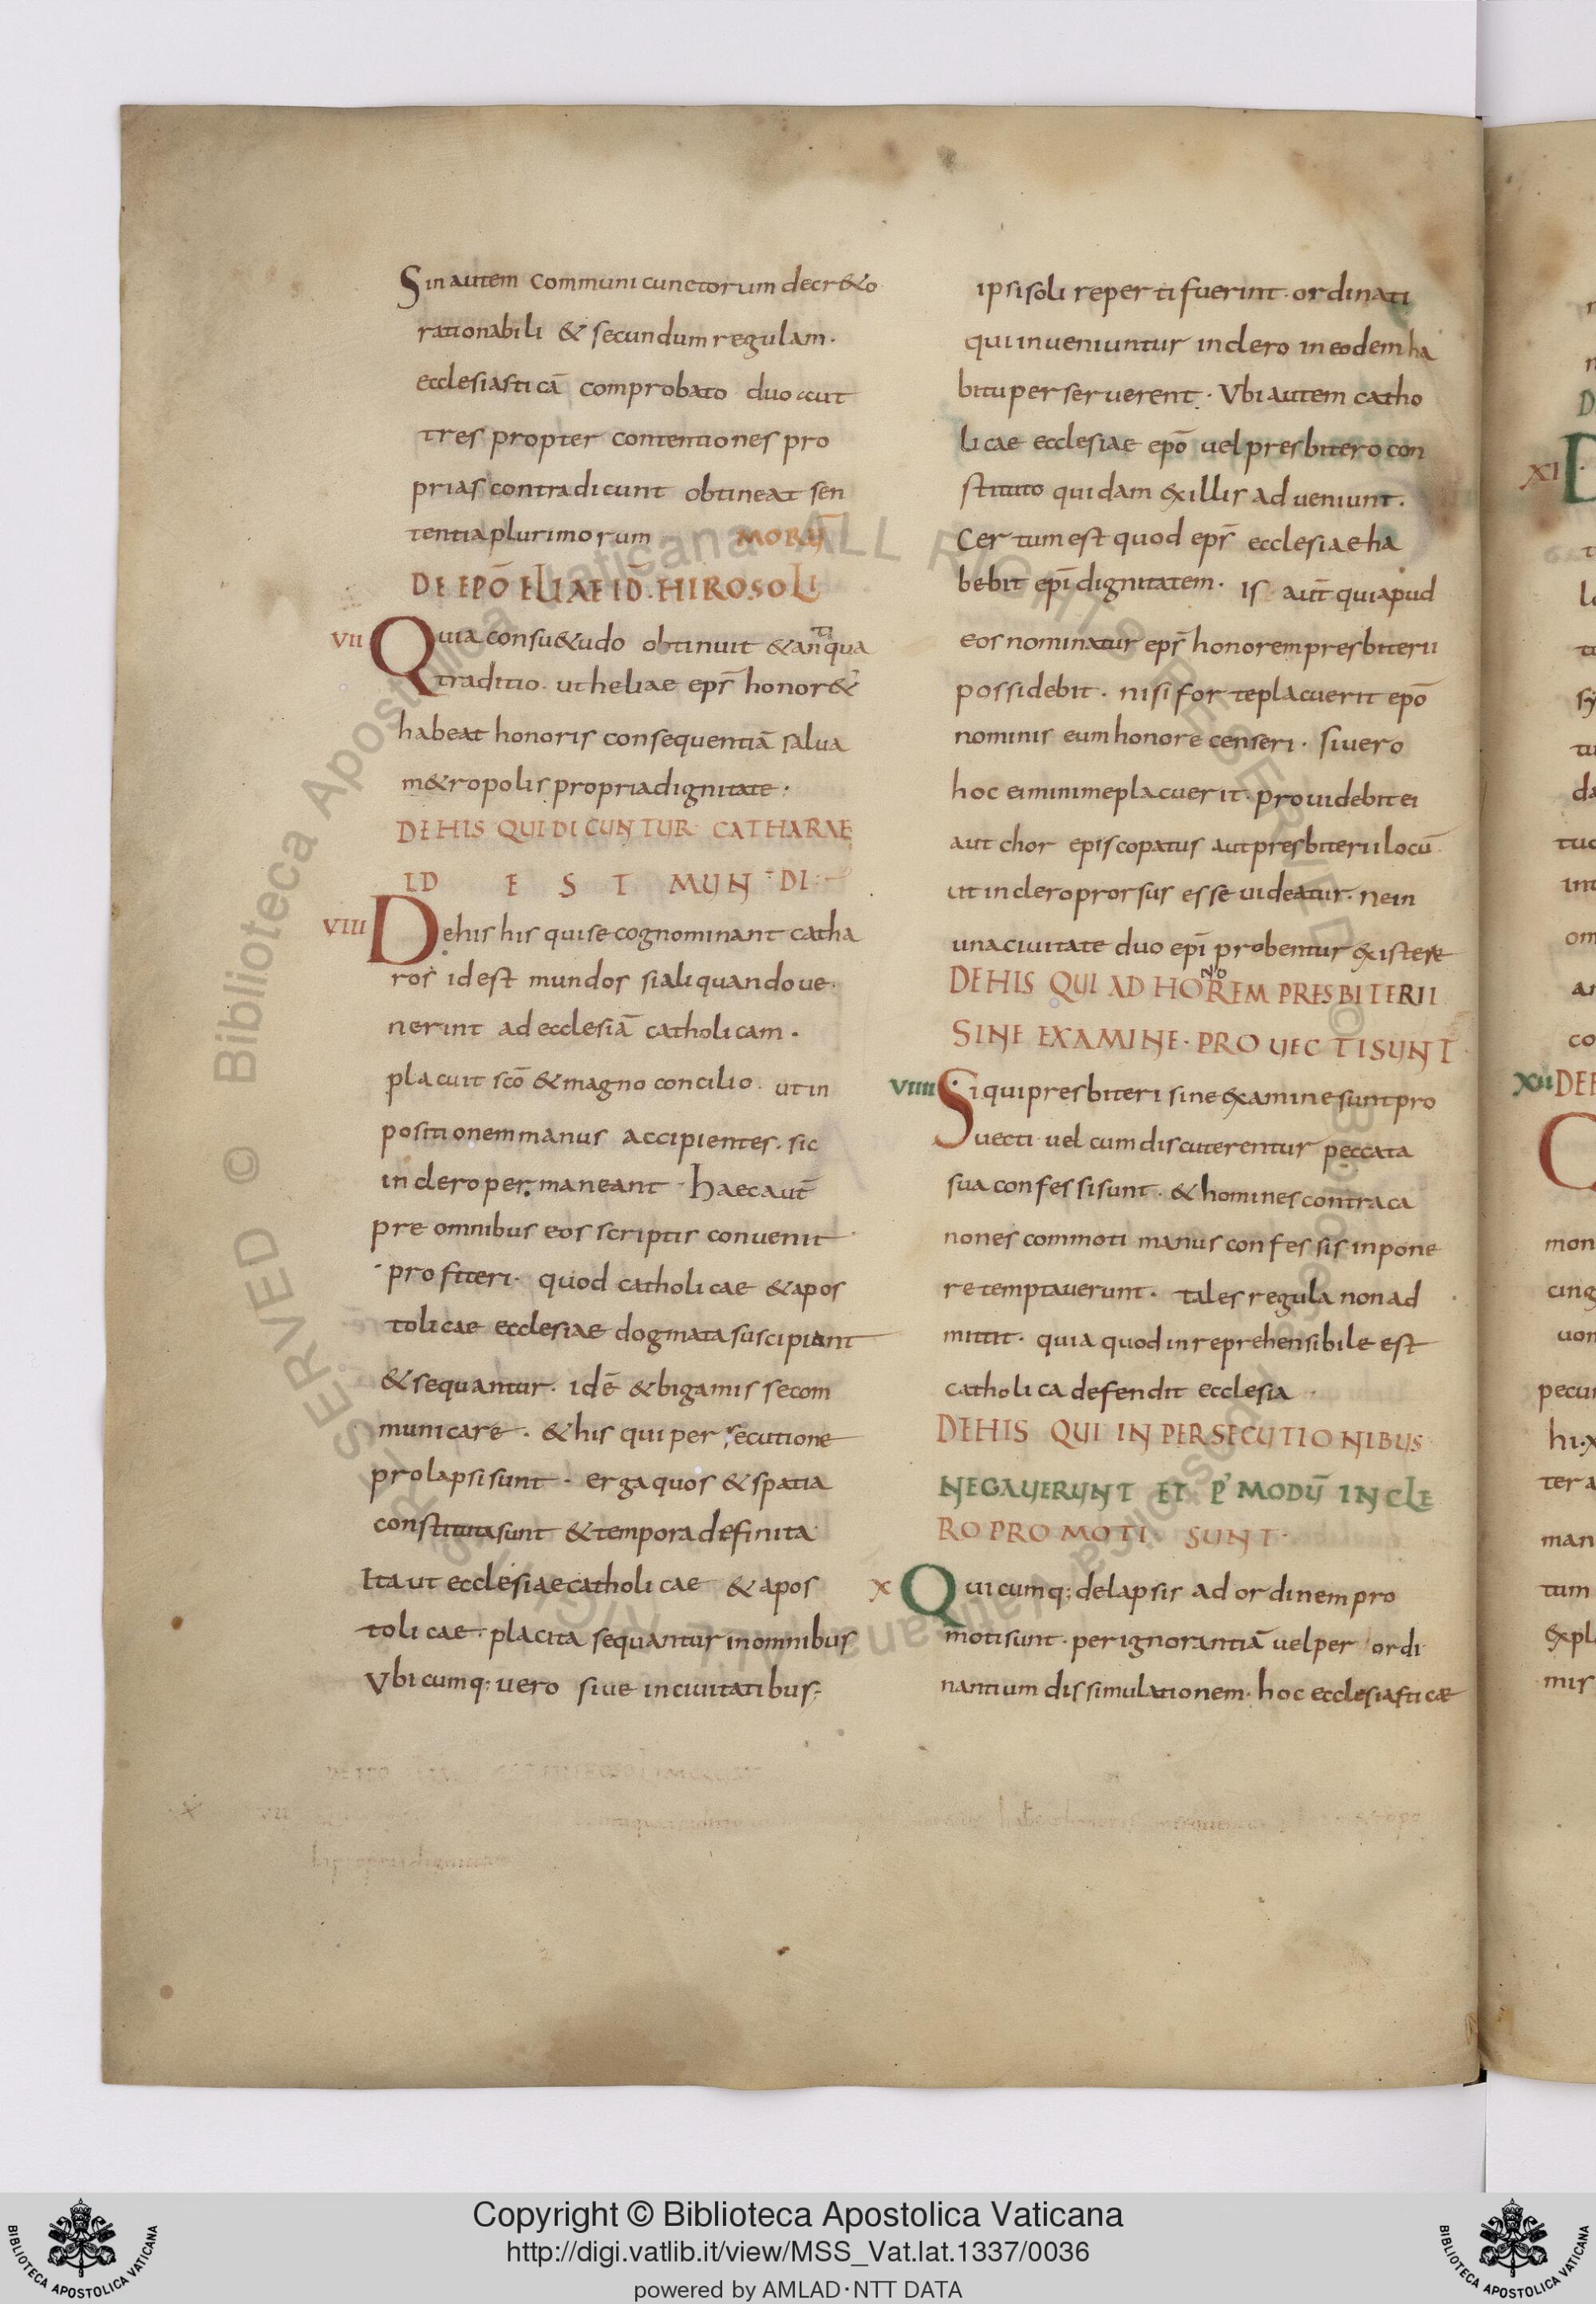 Sin autem communi cunctorum decr&o
rationabili & secundum regulam.
ecclesiasticā comprobato duo aut
tres propter contentiones pro
prias contradicunt obtineat sen
tentia plurimorum MORŪ
DE EPŌ ELIAE ID. HIROSOLI
VII Quia consu&udo obtinuit & antiqua
traditio. ut heliae epr̄ honor&
habeat honoris consequentiā salua
m&ropolis propria dignitate.
DE HIS QUI DICUNTUR CATHARAE
ID EST MUNDI
VIII De his his qui se cognominant catha
ros id est mundos si aliquando ue
nerint ad ecclesiā catholicam.
placuit scō & magno concilio. ut in
positionem manus accipientes. sic
in clero permaneant. haec aut̄
pre omnibus eos scriptis convenit
profiteri. quod catholicae & apos
tolicae ecclesiae dogmata suscipiant
& sequantur. idē & bigamis se com
municare. & his qui persecutione
prolapsi sunt. erga quos & spatia
constituta sunt & tempora definita
Ita ut ecclesiae catholicae & apos
tolicae. placita sequantur in omnibus
Vbicumq; uero siue in ciuitatibus;
ipsi soli reperti fuerint. ordinati
qui inueniuntur in clero in eodem ha
bitu perseruerent. Vbi autem catho
licae ecclesiae epō uel presbitero con
stituto quidam exillis adueniunt.
Certum est quod epr̄ ecclesiae ha
bebit epī dignitatem. is aut̄ qui apud
eos nominatur epr̄ honorem presbiterii
possidebit. nisi forte placuerit epō
nominis eum honore censeri. si uero
hoc ei minime placuerit. prouidebit ei
aut chor episcopatus aut presbiterii locū
ut in clero prorsus esse uideatur. ne in
una ciuitate duo epī probentur existere
DE HIS QUI AD HONOREM PRESBITERII
SINE EXAMINE. PROUECTI SUNT
VIIII Si qui presbiteri sine examine sunt pro
uecti uel cum discuterentur peccata
sua confessi sunt. & homines contra ca
nones commoti manus confessis inpone
re temptauerunt. tales regula non ad
mittit. quia quod inreprehensibile est
catholica defendit ecclesia
DE HIS QUI IN PERSECUTIONIBUS
NEGAUERUNT ET P' MODŪ IN CLE
RO PROMOTI SUNT
X Quicumq; de lapsis ad ordinem pro
moti sunt. per ignorantiā uel per ordi
nantium dissimulationem. hoc ecclesiasticae
XI
XII DE
Copyright © Biblioteca Apostolica Vaticana
http://digi.vatlib.it/view/MSS_Vat.lat.1337/0036
powered by AMLAD·NTT DATA
BIBLIOTECA APOSTOLICA VATICANA
BIBLIOTECA APOSTOLICA VATICANA